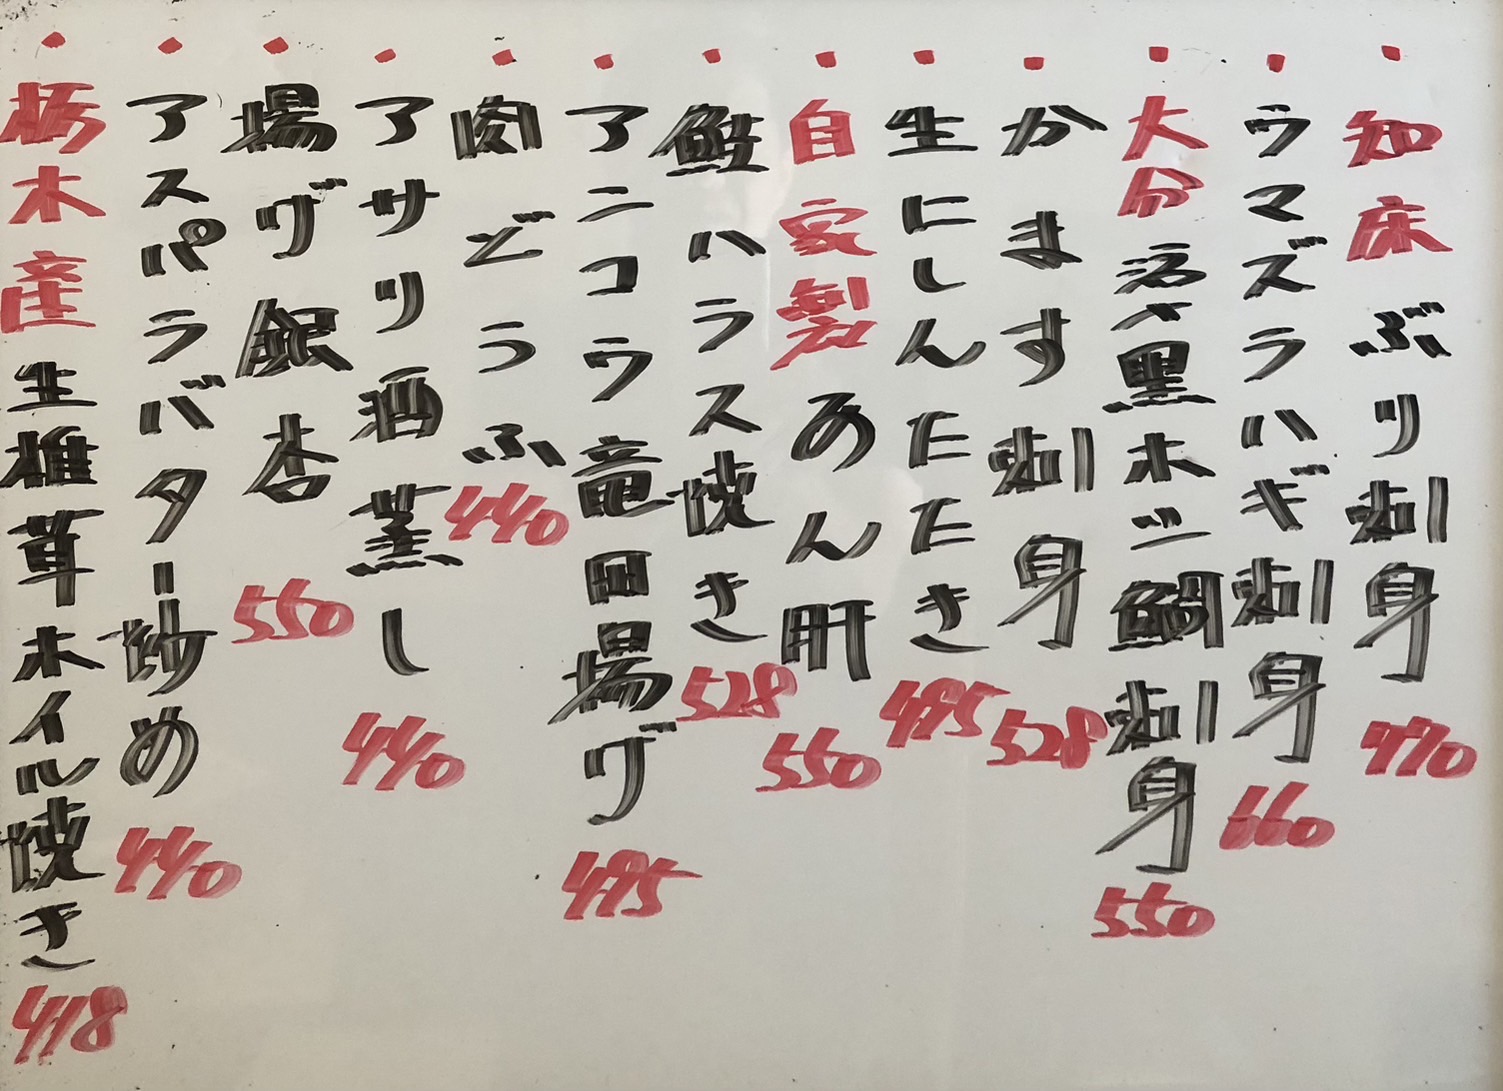 ・知床ぶり刺身 770
・ウマズラハギ刺身 660
・大分活〆黒ホシ鯛刺身 550
・かます刺身 528
・生にしんたたき 495
・自家製あん肝 550
・鮭ハラス焼き 528
・アンコウ竜田揚げ 495
・肉どうふ 440
・アサリ酒蒸し 440
・揚げ銀杏 550
・アスパラバター炒め 440
・栃木産生椎茸ホイル焼き 418